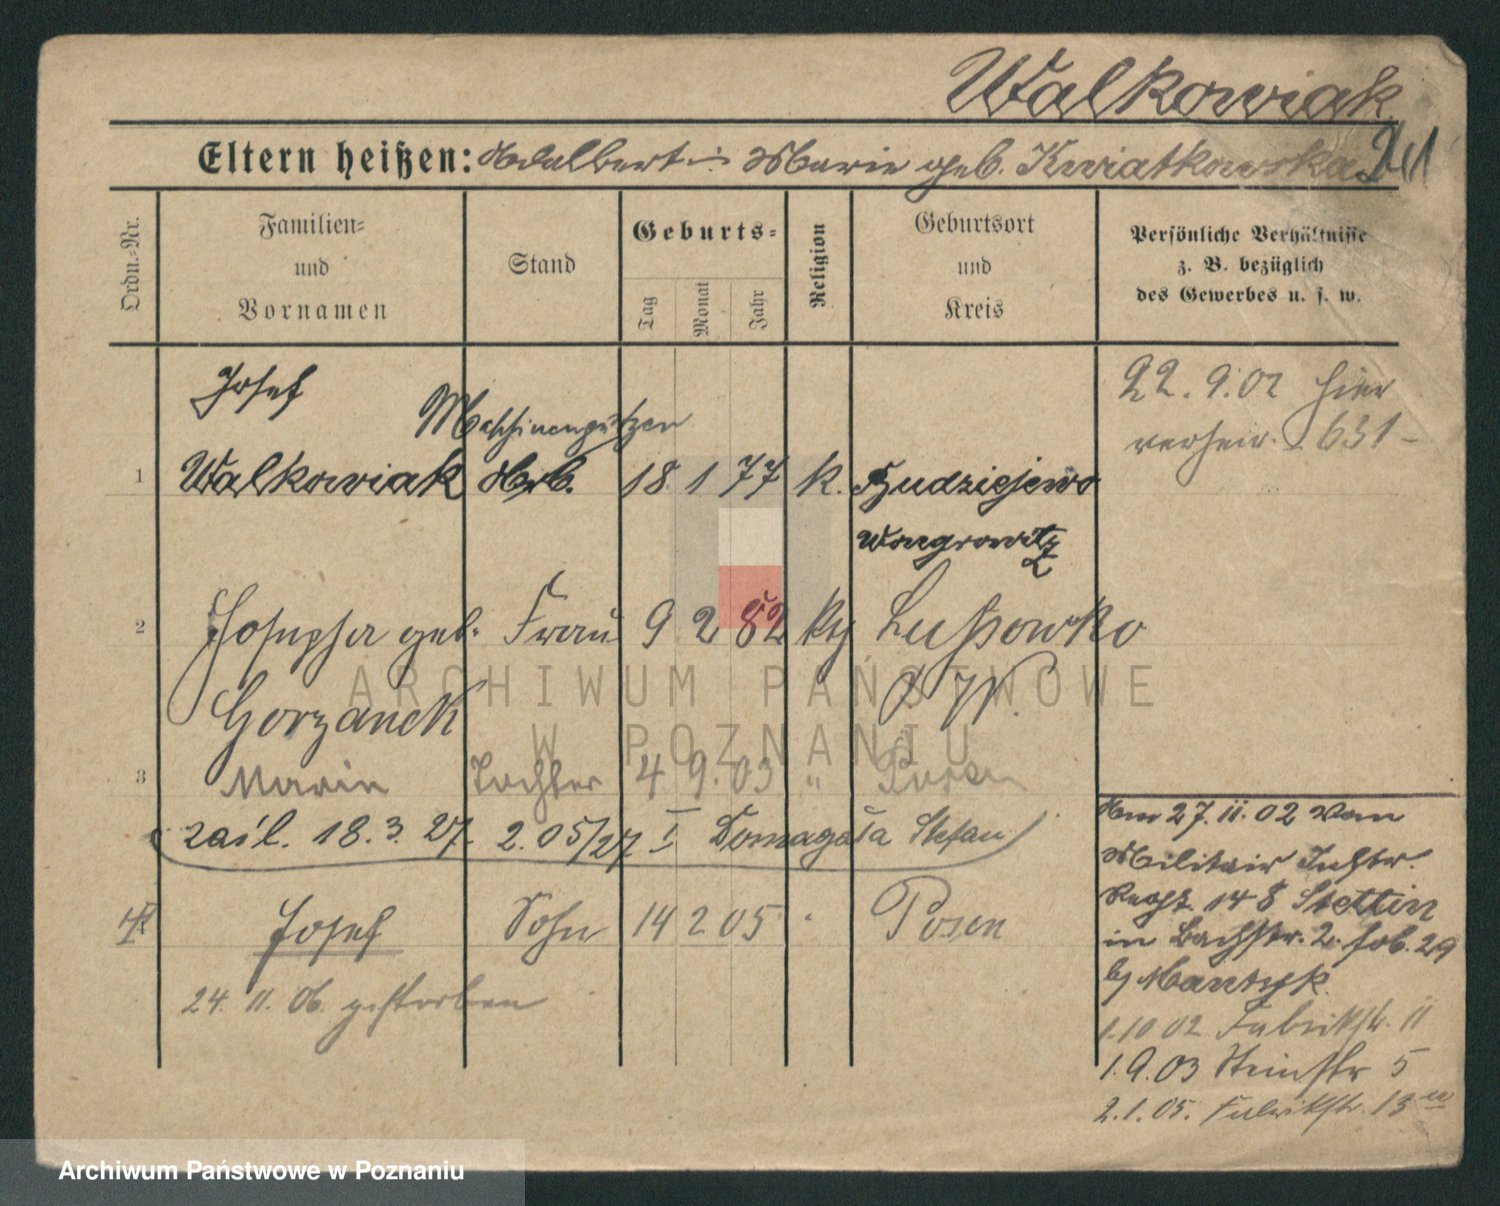 Walkowiak
Eltern heißen: Adalbert u. Marie geb. Kwiatkowska
Ordn.-Nr.
Familien-
und
Vornamen
Stand
Geburts-
Tag
Monat
Jahr
Religion
Geburtsort
und
Kreis
Persönliche Verhältnisse
z. B. bezüglich
des Gewerbes u. s. w.
Josef
Maschinenputzer
1 Walkowiak Arb. 18 1 77 k. Budziejewo
Wongrowitz
22.9.02 hier
verheir. 631-
2 Josepha geb. Frau 9 2 82 Lussowko
Gorzanek
3 Maria Tochter 4 9. 03 " Posen
18. 3. 27. 2. 05/27 I Domagała Stefan
4 Josef Sohn 14 2 05 " Posen
24. 11. 06. gestorben
Am 27. 11. 02 vom
Militair Inftr.
Regt. 148 Stettin
in Bachstr. 2. 29
b/
1.10 02 Fabrikstr. 11
1.9.03 Steinstr 5
2.1.05. Fabrikstr. 13
ARCHIWUM PAŃSTWOWE
W POZNANIU
Archiwum Państwowe w Poznaniu